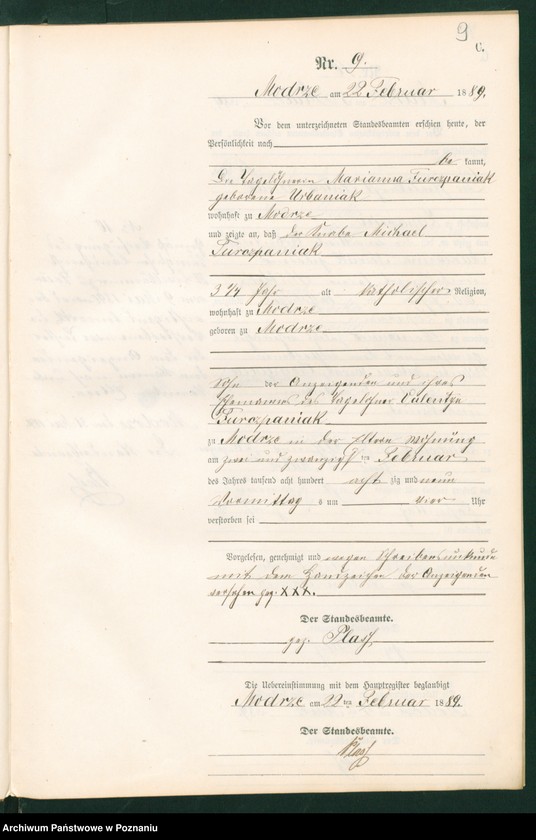 9
C.
Nr. 9.
Modrze am 22 Februar 1889.
Vor dem unterzeichneten Standesbeamten erschien heute, der
Persönlichkeit nach
be kannt,
Die Tagelöhnerin Marianna Turczpaniak
geborene Urbaniak
wohnhaft zu Modrze
und zeigte an, daß der Knabe Michael
Turczpaniak
3 1/4 Jahr alt katholischer Religion,
wohnhaft zu Modrze
geboren zu Modrze
Sohn der Anzeigenden und ihres
Ehemannes des Tagelöhner Valentin
Turczpaniak
zu Modrze in der Eltern Wohnung
am zwei und zwanzigsten Februar
des Jahres tausend acht hundert acht zig und neun
Vormittag s um vier Uhr
verstorben sei
Vorgelesen, genehmigt und wegen Schreibensunkunde
mit dem Handzeichen der Anzeigenden
versehen gez. XXX.
Der Standesbeamte.
gez.
Die Uebereinstimmung mit dem Hauptregister beglaubigt
Modrze am 22 ten Februar 1889.
Der Standesbeamte.
Archiwum Państwowe w Poznaniu